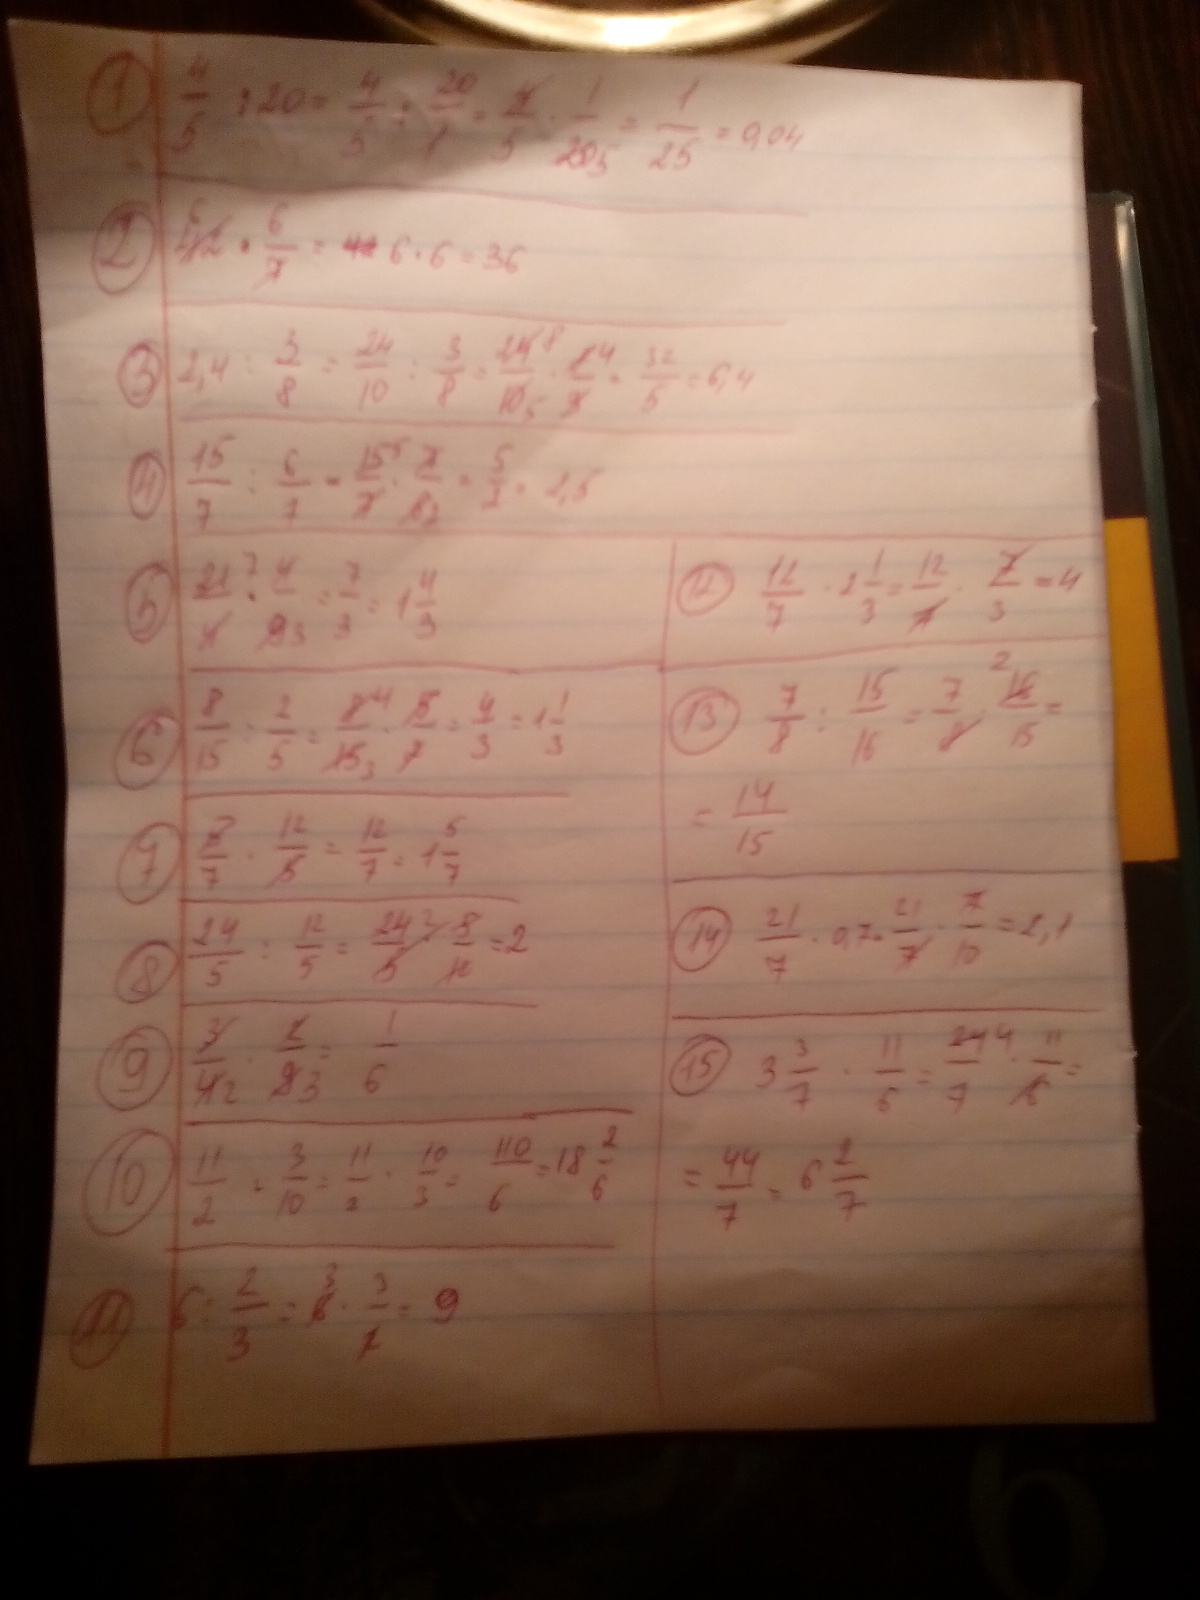 ① 4/5 : 20 = 4/5 : 20/1 = 4/5 · 1/20 5 = 1/25 = 0,04
② 42 6 · 6/7 = 6 · 6 = 36
③ 2,4 : 3/8 = 24/10 : 3/8 = 24 8/10 5 · 8 4/3 = 32/5 = 6,4
④ 15/7 : 6/7 = 15 5/7 · 7/6 2 = 5/2 = 2,5
⑤ 21 7/4 · 4/9 3 = 7/3 = 1 4/3
⑥ 8/15 : 2/5 = 8 4/15 3 · 5/2 = 4/3 = 1 1/3
⑦ 5/7 · 12/5 = 12/7 = 1 5/7
⑧ 24/5 : 12/5 = 24 2/5 · 5/12 = 2
⑨ 3/4 2 · 2/9 3 = 1/6
⑩ 11/2 : 3/10 = 11/2 · 10/3 = 110/6 = 18 2/6
⑪ 6 : 2/3 = 6 3 · 3/2 = 9
⑫ 12/7 · 2 1/3 = 12/7 · 7/3 = 4
⑬ 7/8 : 15/16 = 7/8 · 16 2/15 =
= 14/15
⑭ 21/7 · 0,7 = 21/7 · 7/10 = 2,1
⑮ 3 3/7 · 11/6 = 24 4/7 · 11/6 =
= 44/7 = 6 2/7